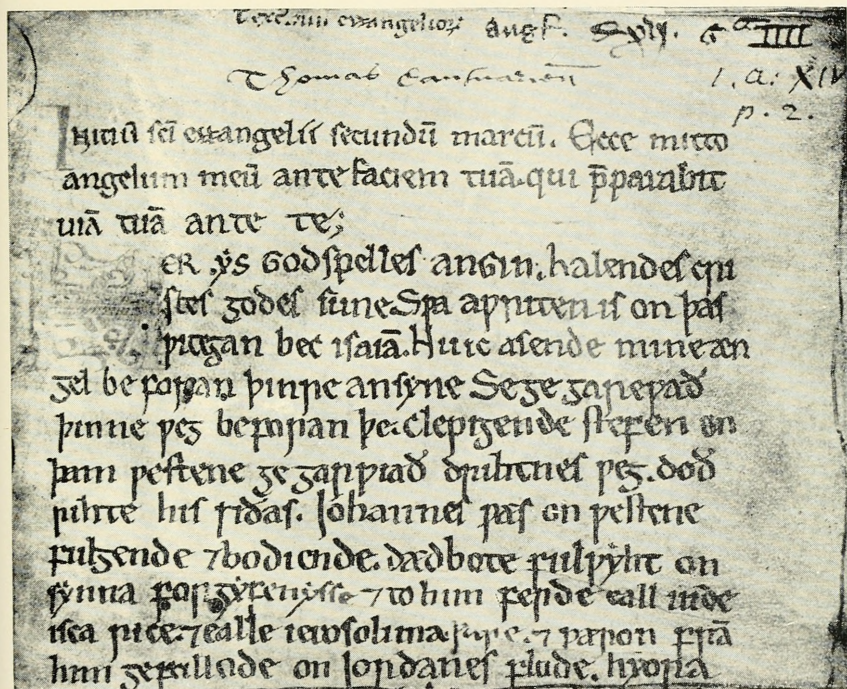 evangelior
Thomas Cantuarien̄
1. A. XIV
p. 2.
Initiū sc̄i euuangelii secundū marcū. Ecce mitto
angelum meū ante faciem tuā. qui p̄parabit
uiā tuā ante te;
ER ys godspelles angin. halendes cri
stes godes sune. Sƿa aƿriten is on þas
ƿitegan bec isaiā. Nu ic asende mine æn
gel be foran þinre ansyne Se ge gareƿað
þinne ƿeg beforan þe. Clepigende stefen on
þam ƿestene ge garƿiað drihtnes ƿeg. doð
rihte his sidas. Johannes ƿas on ƿestene
fulgende ⁊ bodiende. dædbote fulƿyht on
synna forgyfenysse ⁊ to him ferde eall iude
isca rice. ⁊ ealle ierosolima ƿare. ⁊ ƿaron frā
him gefullode on Jordanes flode. hyora